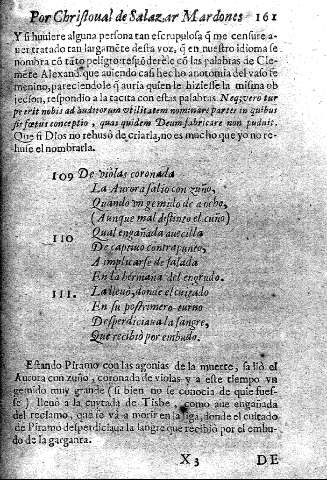 Por Christoual de Salazar Mardones 161
Y si huuiere alguna persona tan escrupulosa q̃ me censure a-
uer tratado tan largamẽte desta voz, q̃ en nuestro idioma se
nombra cõ tãto peligro respõderele cõ las palabras de Cle-
mẽte Alexand. que auiendo casi hecho anotomia del vaso fe
menino, pareciendole q̃ auria quien le hiziesse la misma ob
jecion, respondio a la tacita con estas palabras. Neq; vero tur
pe erit nobis ad auditorum vtilitatem nominare partes in quibus
fit fœtus conceptio, quas quidem Deum fabricare non puduit.
Que si Dios no rehusò de criarla, no es mucho que yo no re-
huse el nombrarla.
109 De violas coronada
La Aurora salio con zuño,
Quando vn gemido de a ocho,
(Aunque mal distingo el cuño)
110 Qual engañada auecilla
De captiuo contrapunto,
A implicarse desalada
En la hermana del engrudo.
111. La lleuò, donde el cuitado
En su postrimero turno
Desperdiciaua la sangre,
Que recibiò por embudo.
Estando Piramo con las agonias de la muerte, salió el
Aurora con zuño, coronada de violas y a este tiempo vn
gemido muy grande (si bien no se conocia de quie fues-
se) lleuò a la cuytada de Tisbe, como aue engañada
del reclamo, que se và a morir en la liga, donde el cuitado
de Piramo desperdiciaua la sangre que recibiò por el embu-
do de la garganta.
X 3 DE